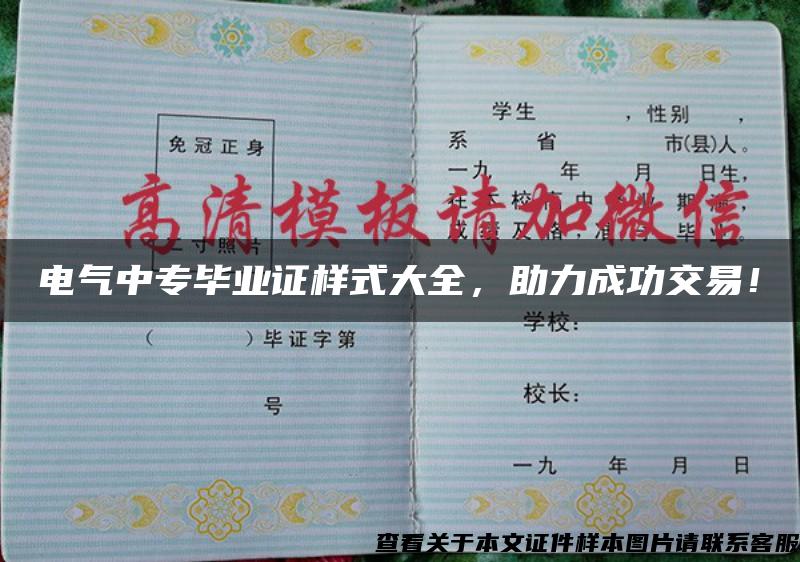 免冠正身
二寸照片
（ ）毕证字第
号
学生 ，性别 ，
系 省 市(县)人。
一九 年 月 日生，
在 校 中 业 期 ，
成绩及格，准予毕业。
高清模板请加微信
电气中专毕业证样式大全，助力成功交易！
学校：
校长：
一九 年 月 日
查看关于本文证件样本图片请联系客服